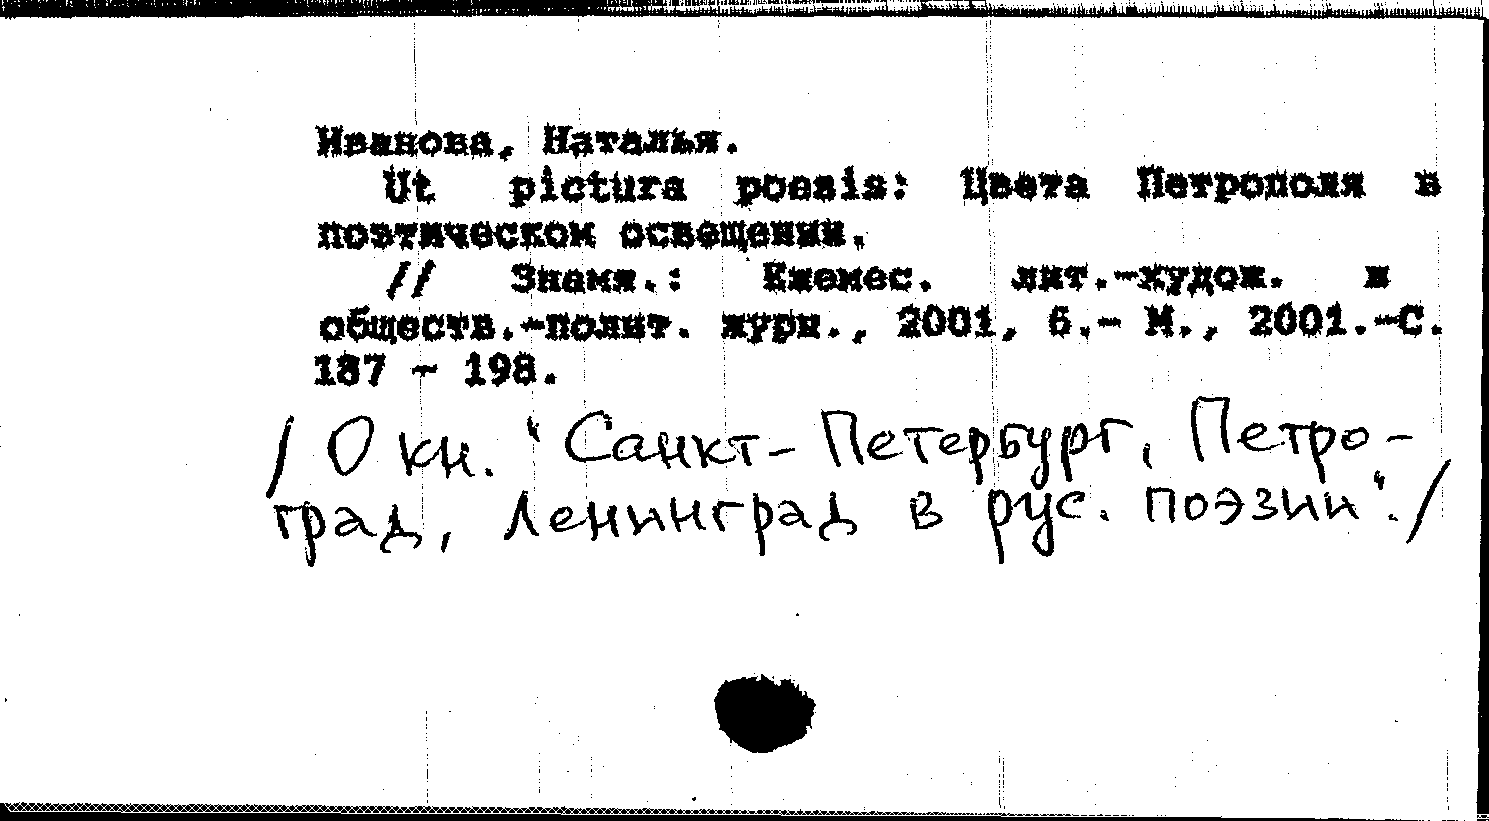 Иванова, Наталья.
Ut pictura poesis: Цвета Петрополя в
поэтическом освещении.
// Знамя.: Ежемес. лит.-худож. и
обществ.-полит. журн., 2001, 6.- М., 2001.-С.
187 - 198.
/ О кн. "Санкт-Петербург, Петро-
град, Ленинград в рус. поэзии"./